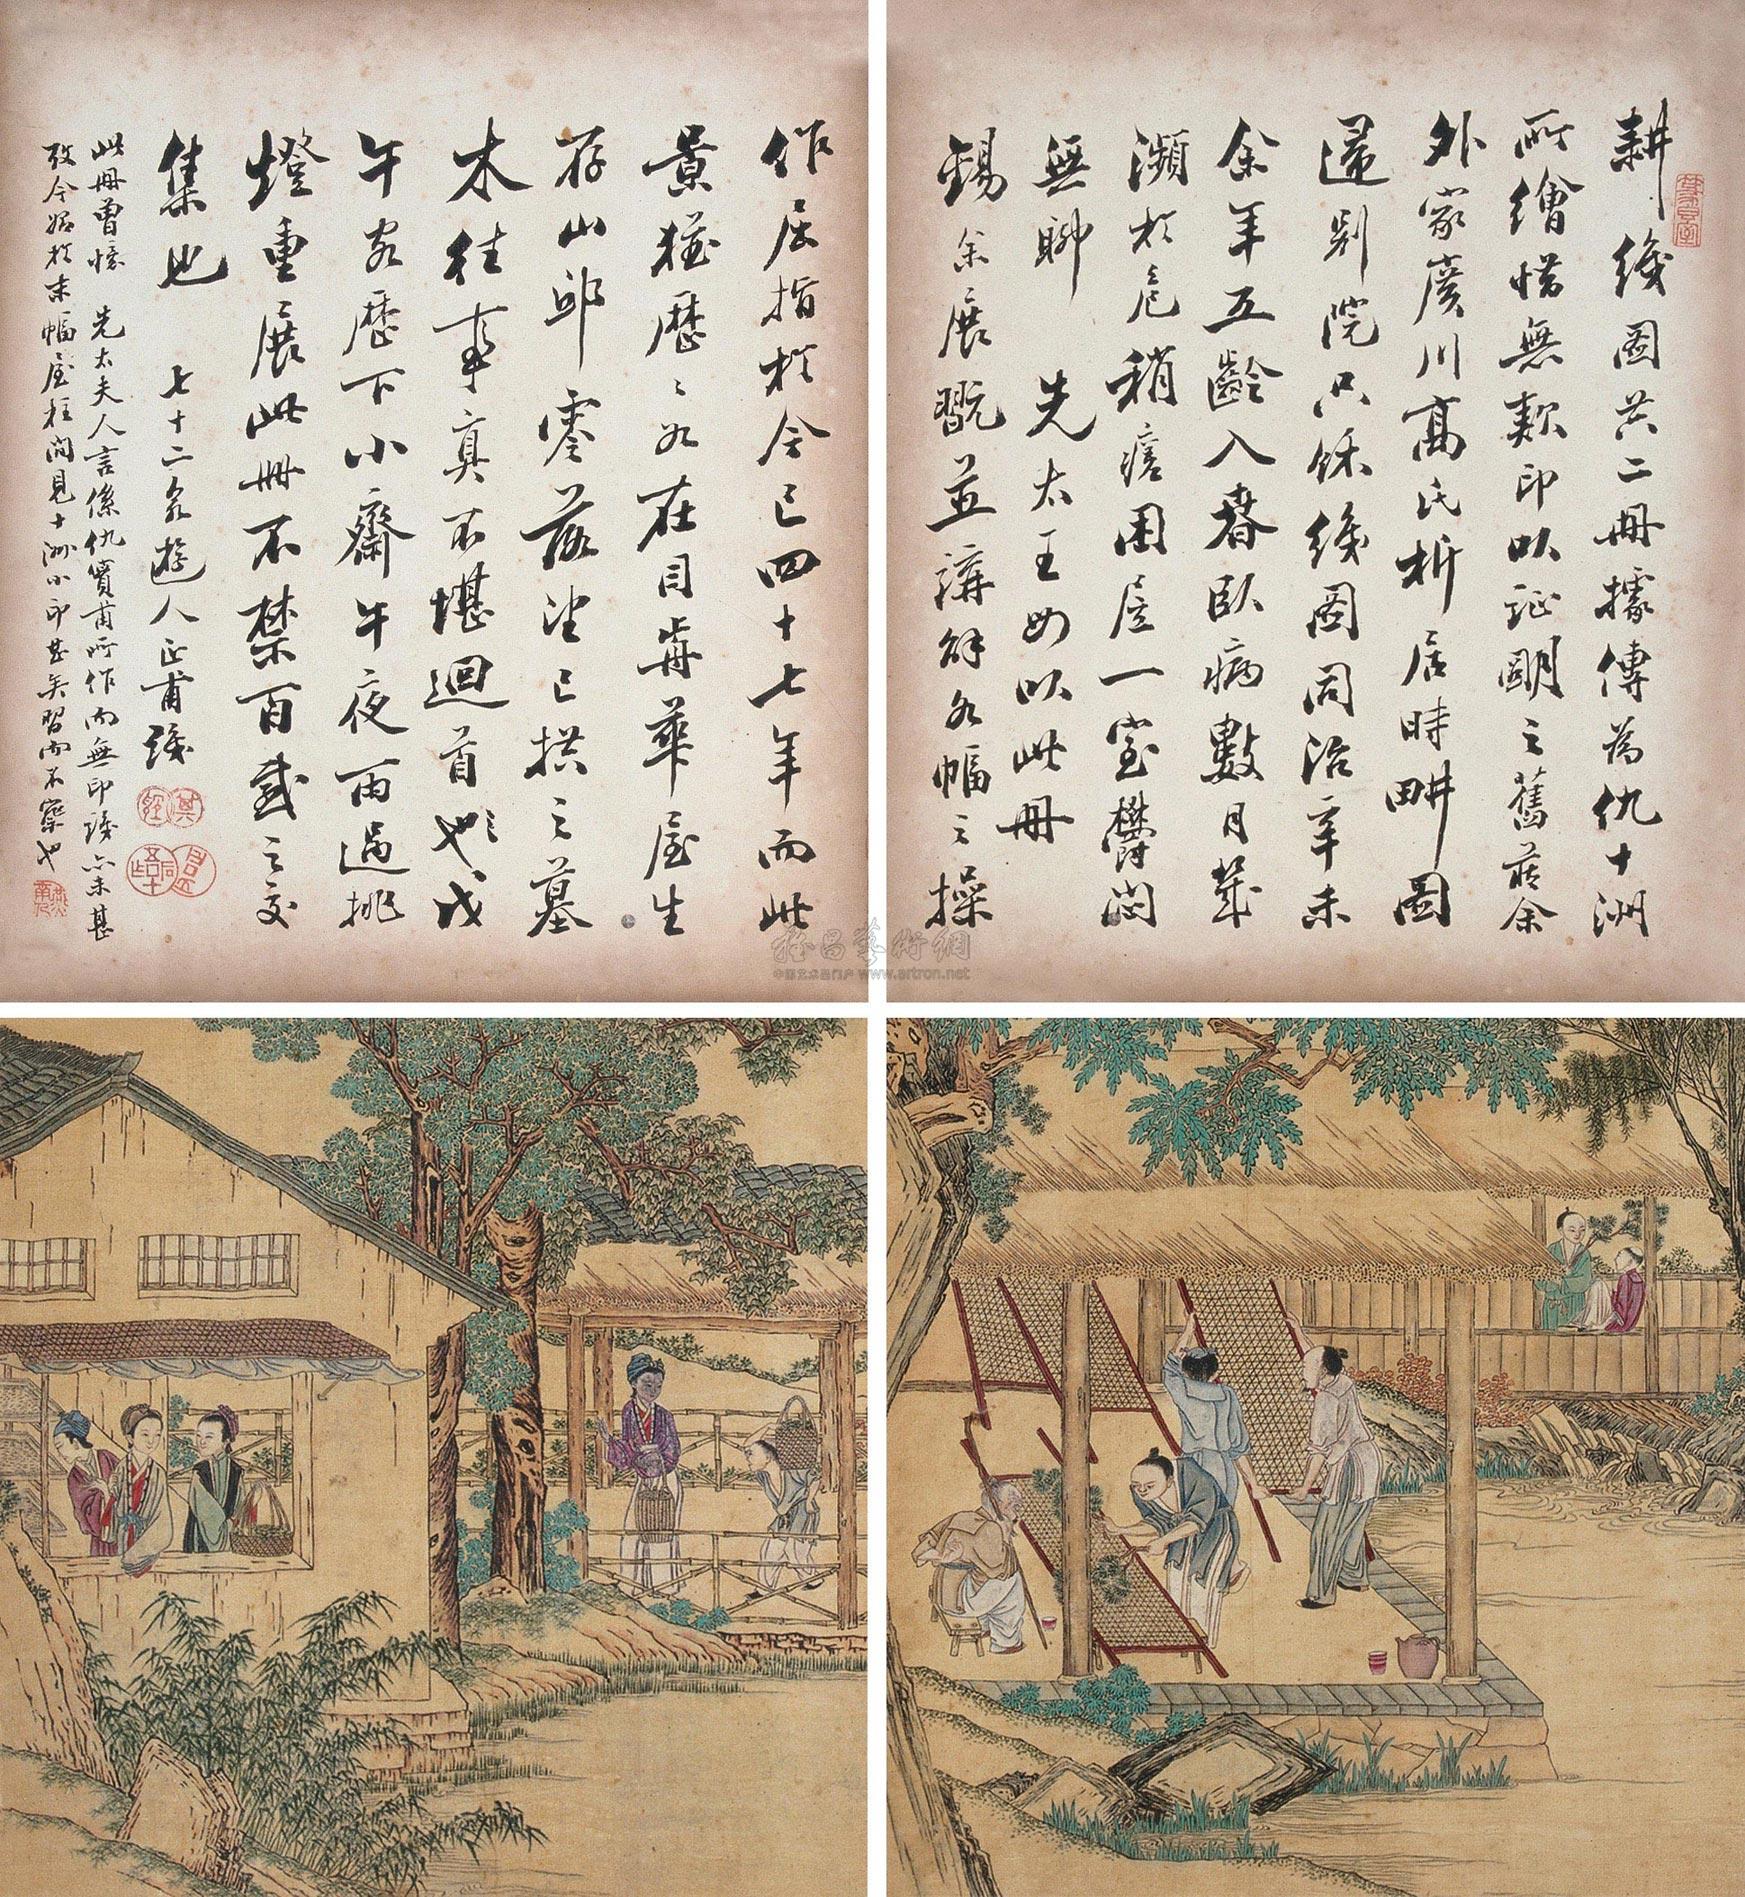 耕織圖共二冊據傳為仇十洲
所繪惜無款印以証明之舊藏余
外家廣川高氏析居時耕圖
歸別院只餘織圖同治辛未
余年五齡入春臥病數月幾
瀕於危稍瘥困居一室鬱悶
無聊 先太王母以此冊
錫余展翫並講解各幅之操
作屈指於今已四十七年而此
景猶歷〻如在目前華屋生
存山邱零落望已拱之墓
木往事真不堪迴首也戊
午客歷下小齋午夜雨過挑
燈重展此冊不禁百感之交
集也 七十二泉游人正甫識
此冊曾憶 先太夫人言係仇實甫所作而無印識亦未甚
攷今始於末幅屋柱間見十洲小印甚矣習而不察也
雅昌藝術網
中国艺术品门户 www.artron.net